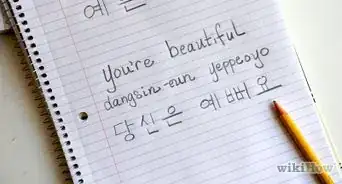 예쁜
you're beautiful
dangsin-eun yeppeoyo
당신은 예뻐요
wikiHow